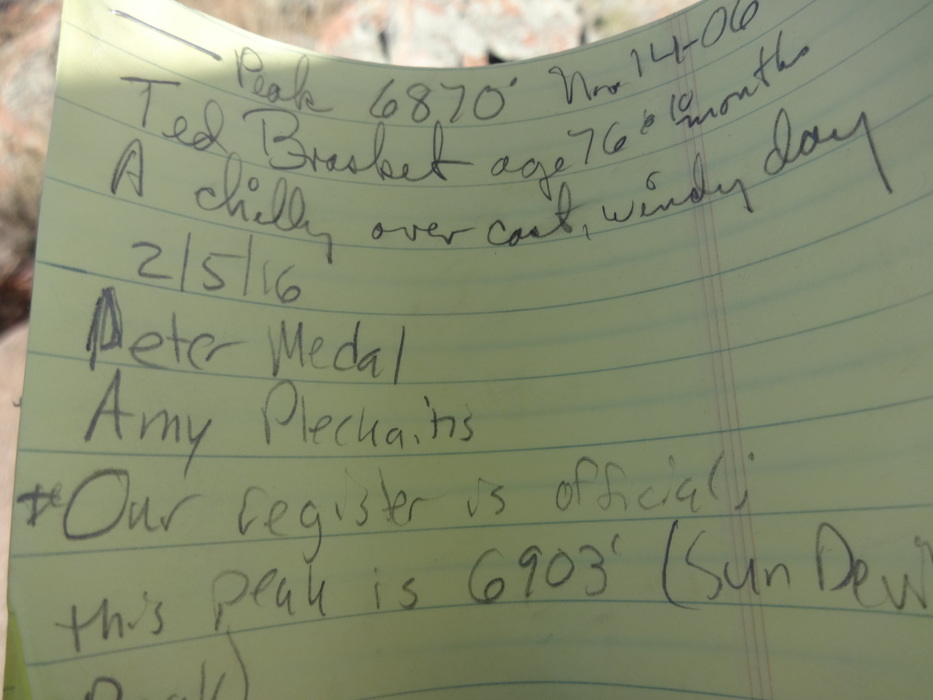 Peak 6870' Nov 14-06
Ted Brasket age 76 & 10 months
A chilly over cast, windy day
2/5/16
Peter Medal
Amy Plechaitis
*Our register is official;
this peak is 6903' (Sun Devil
Peak)